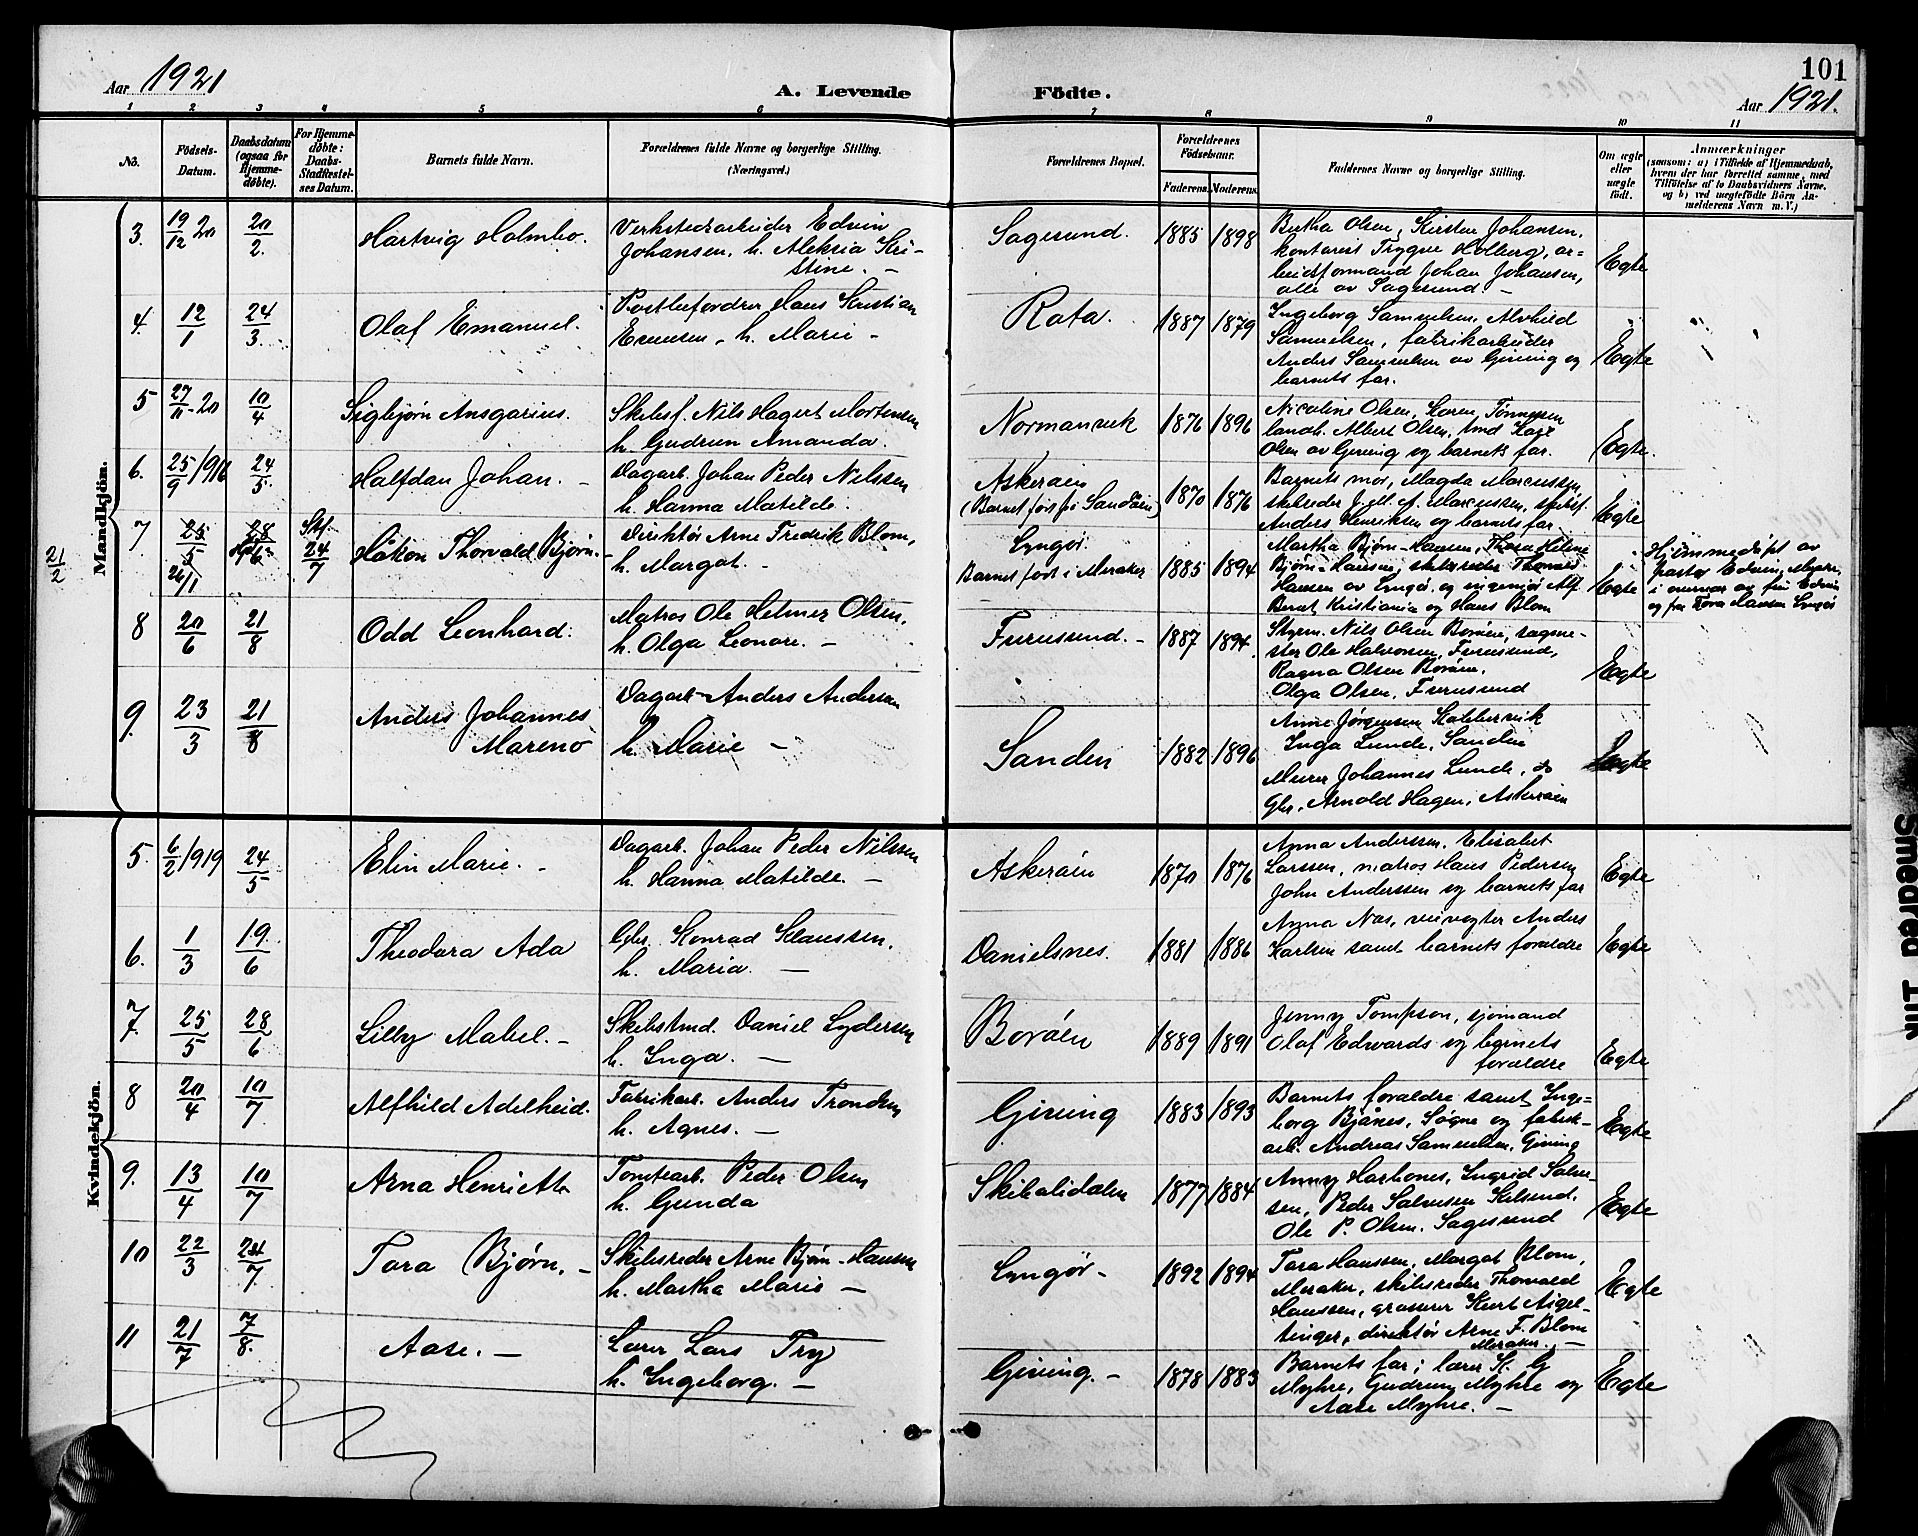 101
Aar 1921
A. Levende Födte.
Aar 1921.
1 2 3 4 5 6 7 8 9 10 11
No.
Födsels-
Datum.
Daabsdatum
(ogsaa for
Hjemme-
döbte).
For Hjemme-
döbte:
Daabs-
Stadfæstel-
ses Datum.
Barnets fulde Navn.
Forældrenes fulde Navne og borgerlige Stilling.
(Næringsvei.)
Forældrenes Bopæl.
Forældrenes
Födselsaar.
Faderens. Moderens.
Faddernes Navne og borgerlige Stilling.
Om ægte
eller
uægte
födt.
Anmærkninger
(saasom: a) i Tilfælde af Hjemmedaab,
hvem der har forrettet samme, med
Tilföielse af to Daabsvidners Navne.
og b) ved uægtefödte Börn An-
melderens Navn m. V.)
Mandkjön.
3. 19/12 20 20/2. Hartvig Holmbo.
Verkstedsarbeider Edvin
Johansen, h. Aleksia Kri-
stine. -
Sagesund. 1885 1898
Bertha Olsen, Kirsten Johansen,
kontorist Trygve Holberg, ar-
beidsformand Johan Johansen,
alle av Sagesund. -
Egte
4 12/1 24/3. Olaf Emanuel.
Postbefordrer Hans Kristian
Evensen, h. Marie -
Rota. 1887 1879
Ingeborg Samuelsen, Alvhild
Samuelsen, fabrikarbeider
Anders Samuelsen av Giving og
barnets far.
Egte
5 27/11-20 10/4 Sigbjørn Ansgarius.
Skibsf. Nils Hagert Mortensen
h. Gudrun Amanda.
Normanvik 1876 1896
Nicoline Olsen, Karen Tønnessen
landh. Albert Olsen, tmd Kage
Olsen av Giving og barnets far.
Egte.
6. 25/9/916 24/5. Halfdan Johan. -
Dagarb. Johan Peder Nilssen
h. Hanna Matilde.
Askerøen
(Barnet født på Sandøen) 1870 1876
Barnets mor, Magda Marcussen,
skibsreder J. M. A. Marcussen, skibsf.
Anders Henriksen og barnets far
Egte
21/2
7 25/5 26/1 28/6 Stf. 24/7 Håkon Thorvald Bjørn. -
Direktør Arne Fredrik Blom,
h. Margot. -
Lyngør.
Barnet født i Meraker 1885 1894
Martha Bjørn-Hansen, Thora Helene
Bjørn-Hansen, skibsreder Thorvald
Hansen av Lyngør, og ingeniør Alf
Bernt Kristiania og Hans Blom
Egte
Hjemmedøpt av
pastor Edvin, Meraker,
i overvær av fru Edvin
og fru Tora Hansen Lyngør
8 20/6 21/8 Odd Leonhard.
Matros Ole Helmer Olsen,
h. Olga Leonore. -
Furusund. - 1887 1894
Styrm. Nils Olsen Borøen, sagme-
ster Ole Halvorsen, Furusund,
Ragna Olsen Borøen,
Olga Olsen, Furusund
Egte
9. 23/3 21/8 Anders Johannes
Mareno
Dagarb. Anders Andersen
h. Marie -
Sanden 1882 1896
Anne Jørgensen Kabbervik
Inga Lunde, Sanden
Murer Johannes Lunde, do
Gbr. Arnold Hagen, Askerøen
Egte
Kvindekjön.
5. 6/2/919 24/5 Elin Marie. -
Dagarb. Johan Peder Nilssen
h. Hanna Matilde. -
Askerøen 1870 1876
Anna Anderssen, Elisabet
Larssen, matros Hans Pedersen
John Anderssen og barnets far
Egte
6. 1/3 19/6 Theodora Ada
Gbr. Konrad Klaussen,
h. Maria. -
Danielsnes. 1881 1886
Anna Næs, veivogter Anders
Karlsen samt barnets forældre
Egte
7. 25/5 28/6 Lilly Mabel. -
Skibstmd. Daniel Lydersen
h. Inga. -
Borøen 1889 1891
Jenny Tompson, sjømand
Olaf Edwards og barnets
forældre
Egte
8 20/4 10/7 Alfhild Adelheid.
Fabrikarb. Anders Trondsen
h. Agnes. -
Giving 1883 1893
Barnets forældre samt Inge-
borg Bjånes, Søgne og fabrik-
arb. Andreas Samuelsen, Giving
Egte
9. 13/4 10/7 Arna Henriette
Tomtearb. Peder Olsen
h. Gunda
Skibalidalen 1877 1884
Anny Harbones, Ingrid Salve-
sen, Peder Salvesen Kilsund,
Ole P. Olsen, Sagesund
Egte
10 22/3 24/7 Tora Bjørn. -
Skibsreder Arne Bjørn-Hansen
h. Martha Marie -
Lyngør - 1892 1894
Tora Hanssen, Margot Blom,
Meraker, skibsreder Thorvald
Hanssen, grosserer Kurt Aigel-
tinger, direktør Arne F. Blom
Meraker. -
Egte
11 21/7 7/8. Aase. -
Lærer Lars Try
h. Ingeborg. -
Giving. - 1878 1883
Barnets far, lærer K. G
Myhre, Gudrun Myhre og
Aase Myhre. -
Egte
Smeared Ink